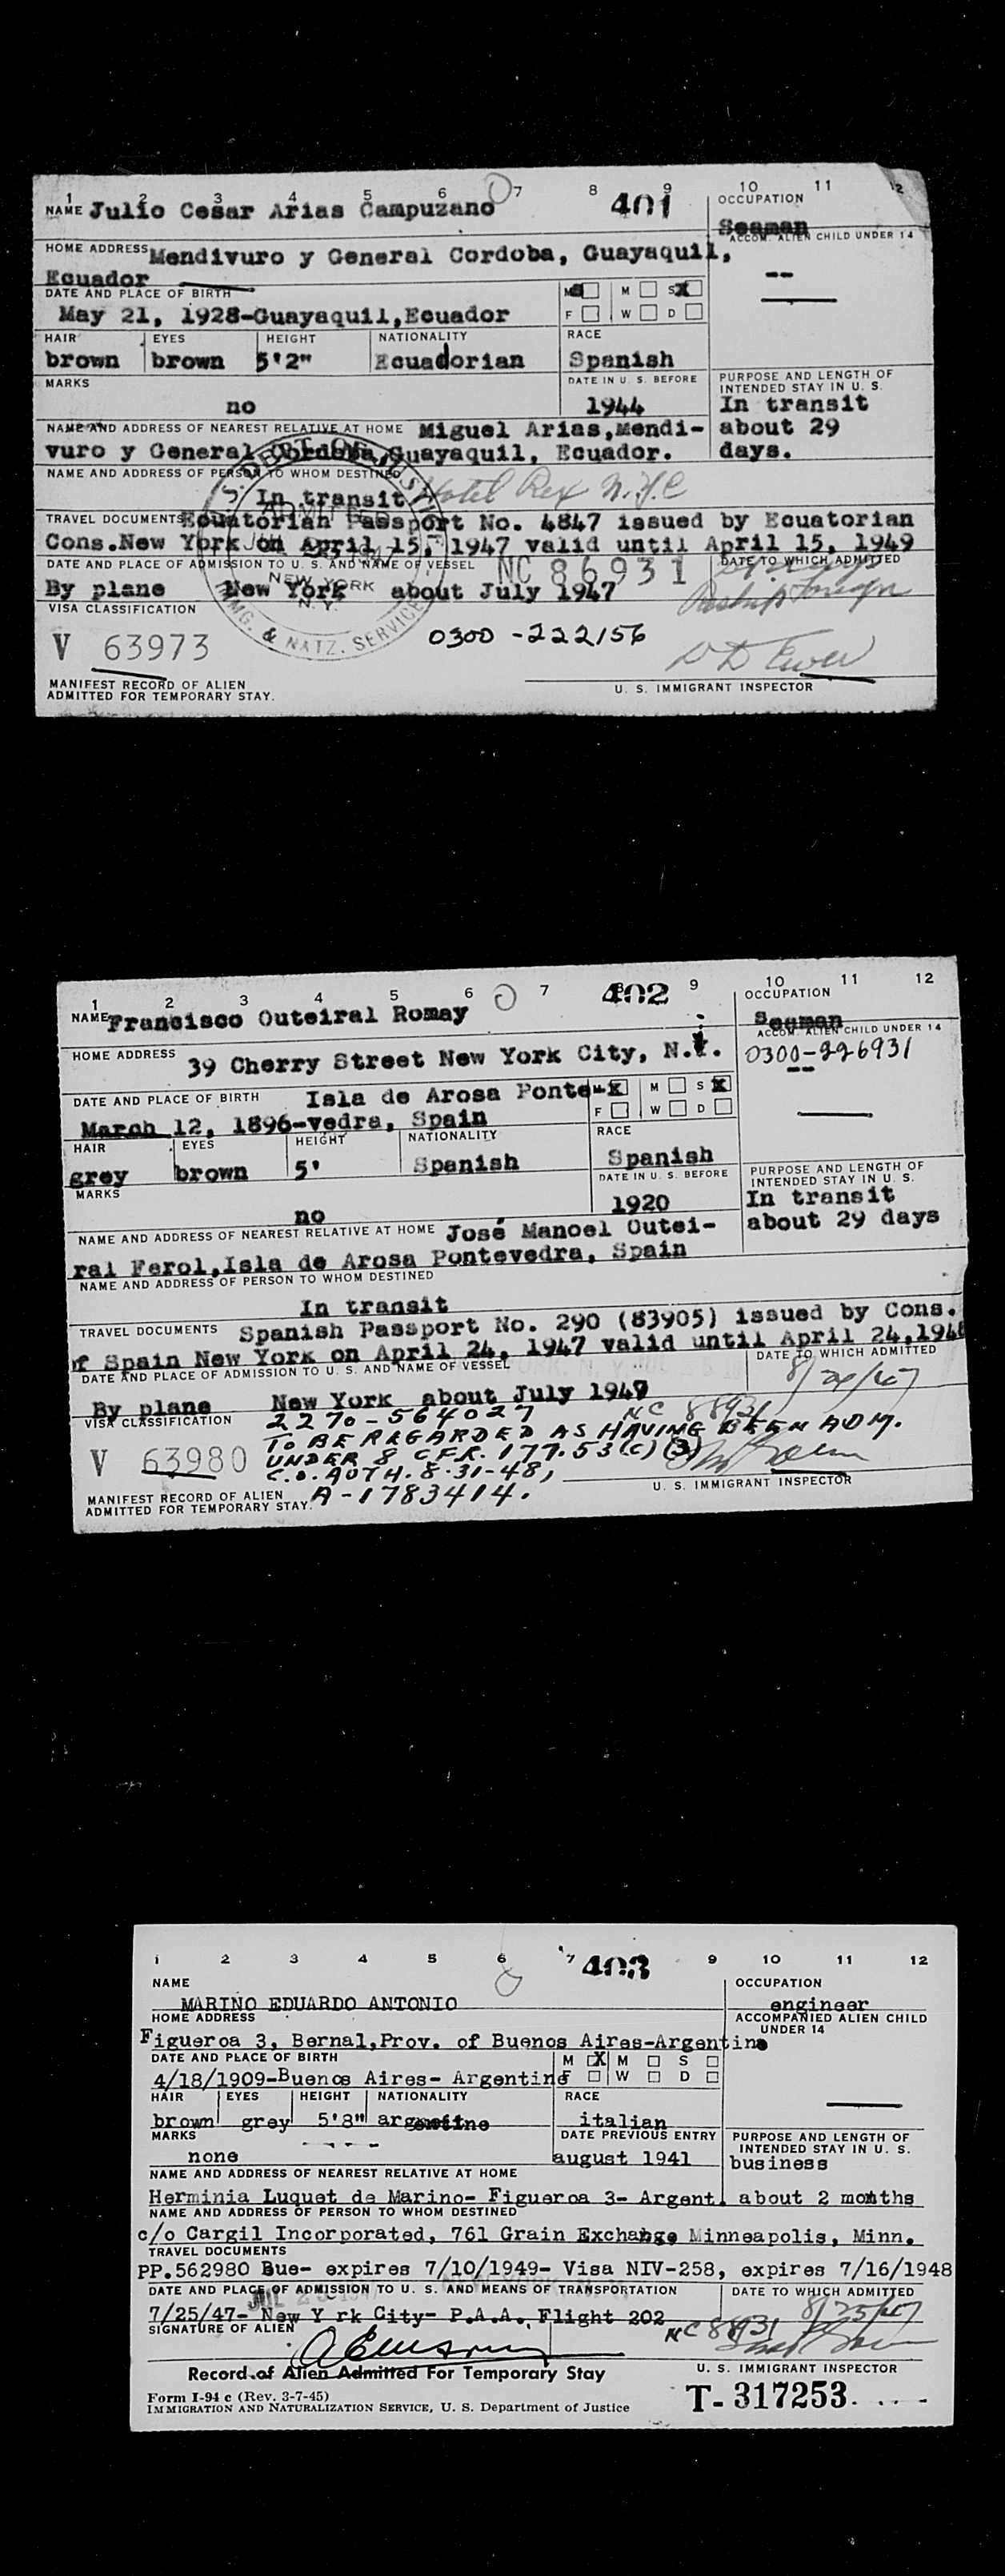 1 2 3 4 5 6 7 8 9 10 11 12
401
NAME Julio Cesar Arias Campuzano
OCCUPATION
Seaman
HOME ADDRESS Mendivuro y General Cordoba, Guayaquil,
ACCOM. ALIEN CHILD UNDER 14
Ecuador
--
DATE AND PLACE OF BIRTH
M M S X
May 21, 1928-Guayaquil,Ecuador
F W D
HAIR EYES HEIGHT NATIONALITY RACE
brown brown 5'2" Ecuadorian Spanish
MARKS DATE IN U. S. BEFORE PURPOSE AND LENGTH OF
INTENDED STAY IN U. S.
no 1944 In transit
NAME AND ADDRESS OF NEAREST RELATIVE AT HOME Miguel Arias,Mendi- about 29
vuro y General Cordoba,Guayaquil, Ecuador. days.
NAME AND ADDRESS OF PERSON TO WHOM DESTINED
In transit Hotel Rex N.Y.C
TRAVEL DOCUMENTS Ecuatorian Passport No. 4847 issued by Ecuatorian
Cons.New York on April 15, 1947 valid until April 15, 1949
DATE AND PLACE OF ADMISSION TO U. S. AND NAME OF VESSEL NC 86931 DATE TO WHICH ADMITTED
By plane New York about July 1947
ADMITTED
NEW YORK
N.Y.
IMMG. & NATZ. SERVICE
VISA CLASSIFICATION
0300 -222156
V 63973
MANIFEST RECORD OF ALIEN
ADMITTED FOR TEMPORARY STAY.
U. S. IMMIGRANT INSPECTOR
1 2 3 4 5 6 7 9 10 11 12
402
NAME Francisco Outeiral Romay
OCCUPATION
Seaman
ACCOM. ALIEN CHILD UNDER 14
HOME ADDRESS 39 Cherry Street New York City, N.Y.
0300-226931
--
DATE AND PLACE OF BIRTH Isla de Arosa Ponte- X M S X
March 12, 1896-vedra, Spain F W D
HAIR EYES HEIGHT NATIONALITY RACE
grey brown 5' Spanish Spanish
MARKS DATE IN U. S. BEFORE PURPOSE AND LENGTH OF
INTENDED STAY IN U. S.
no 1920 In transit
NAME AND ADDRESS OF NEAREST RELATIVE AT HOME José Manoel Outei- about 29 days
ral Ferol,Isla de Arosa Pontevedra, Spain
NAME AND ADDRESS OF PERSON TO WHOM DESTINED
In transit
TRAVEL DOCUMENTS Spanish Passport No. 290 (83905) issued by Cons.
f Spain New York on April 24, 1947 valid until April 24,194
DATE AND PLACE OF ADMISSION TO U. S. AND NAME OF VESSEL DATE TO WHICH ADMITTED
By plane New York about July 1947
VISA CLASSIFICATION 2270-564027 NC 88931
TO BE REGARDED AS HAVING BEEN ADM.
UNDER 8 C.F.R. 177.53(c)(3)
V 63980 C.O. AUTH. 8-31-48,
A-1783414.
MANIFEST RECORD OF ALIEN
ADMITTED FOR TEMPORARY STAY.
U. S. IMMIGRANT INSPECTOR
1 2 3 4 5 6 7 9 10 11 12
403
NAME OCCUPATION
MARINO EDUARDO ANTONIO engineer
HOME ADDRESS ACCOMPANIED ALIEN CHILD
UNDER 14
Figueroa 3, Bernal,Prov. of Buenos Aires-Argentina
DATE AND PLACE OF BIRTH M X M S
4/18/1909-Buenos Aires- Argentine F W D
HAIR EYES HEIGHT NATIONALITY RACE
brown grey 5'8" argentine italian
MARKS DATE PREVIOUS ENTRY PURPOSE AND LENGTH OF
INTENDED STAY IN U. S.
none august 1941 business
NAME AND ADDRESS OF NEAREST RELATIVE AT HOME
Herminia Luquet de Marino- Figueroa 3- Argent. about 2 months
NAME AND ADDRESS OF PERSON TO WHOM DESTINED
c/o Cargil Incorporated, 761 Grain Exchange Minneapolis, Minn.
TRAVEL DOCUMENTS
PP.562980 Bue- expires 7/10/1949- Visa NIV-258, expires 7/16/1948
DATE AND PLACE OF ADMISSION TO U. S. AND MEANS OF TRANSPORTATION DATE TO WHICH ADMITTED
7/25/47- New Y rk City- P.A.A. Flight 202 8/25/47
SIGNATURE OF ALIEN NC 88931
Record of Alien Admitted For Temporary Stay
U. S. IMMIGRANT INSPECTOR
Form I-94 c (Rev. 3-7-45)
IMMIGRATION AND NATURALIZATION SERVICE, U. S. Department of Justice
T- 317253